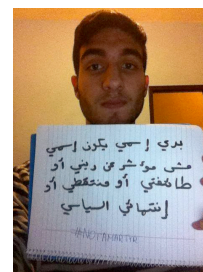 بدي إسمي يكون إسمي
مش مؤشر عن ديني أو
طائفتي أو منطقتي أو
إنتمائي السياسي
#NOTAMARTYR